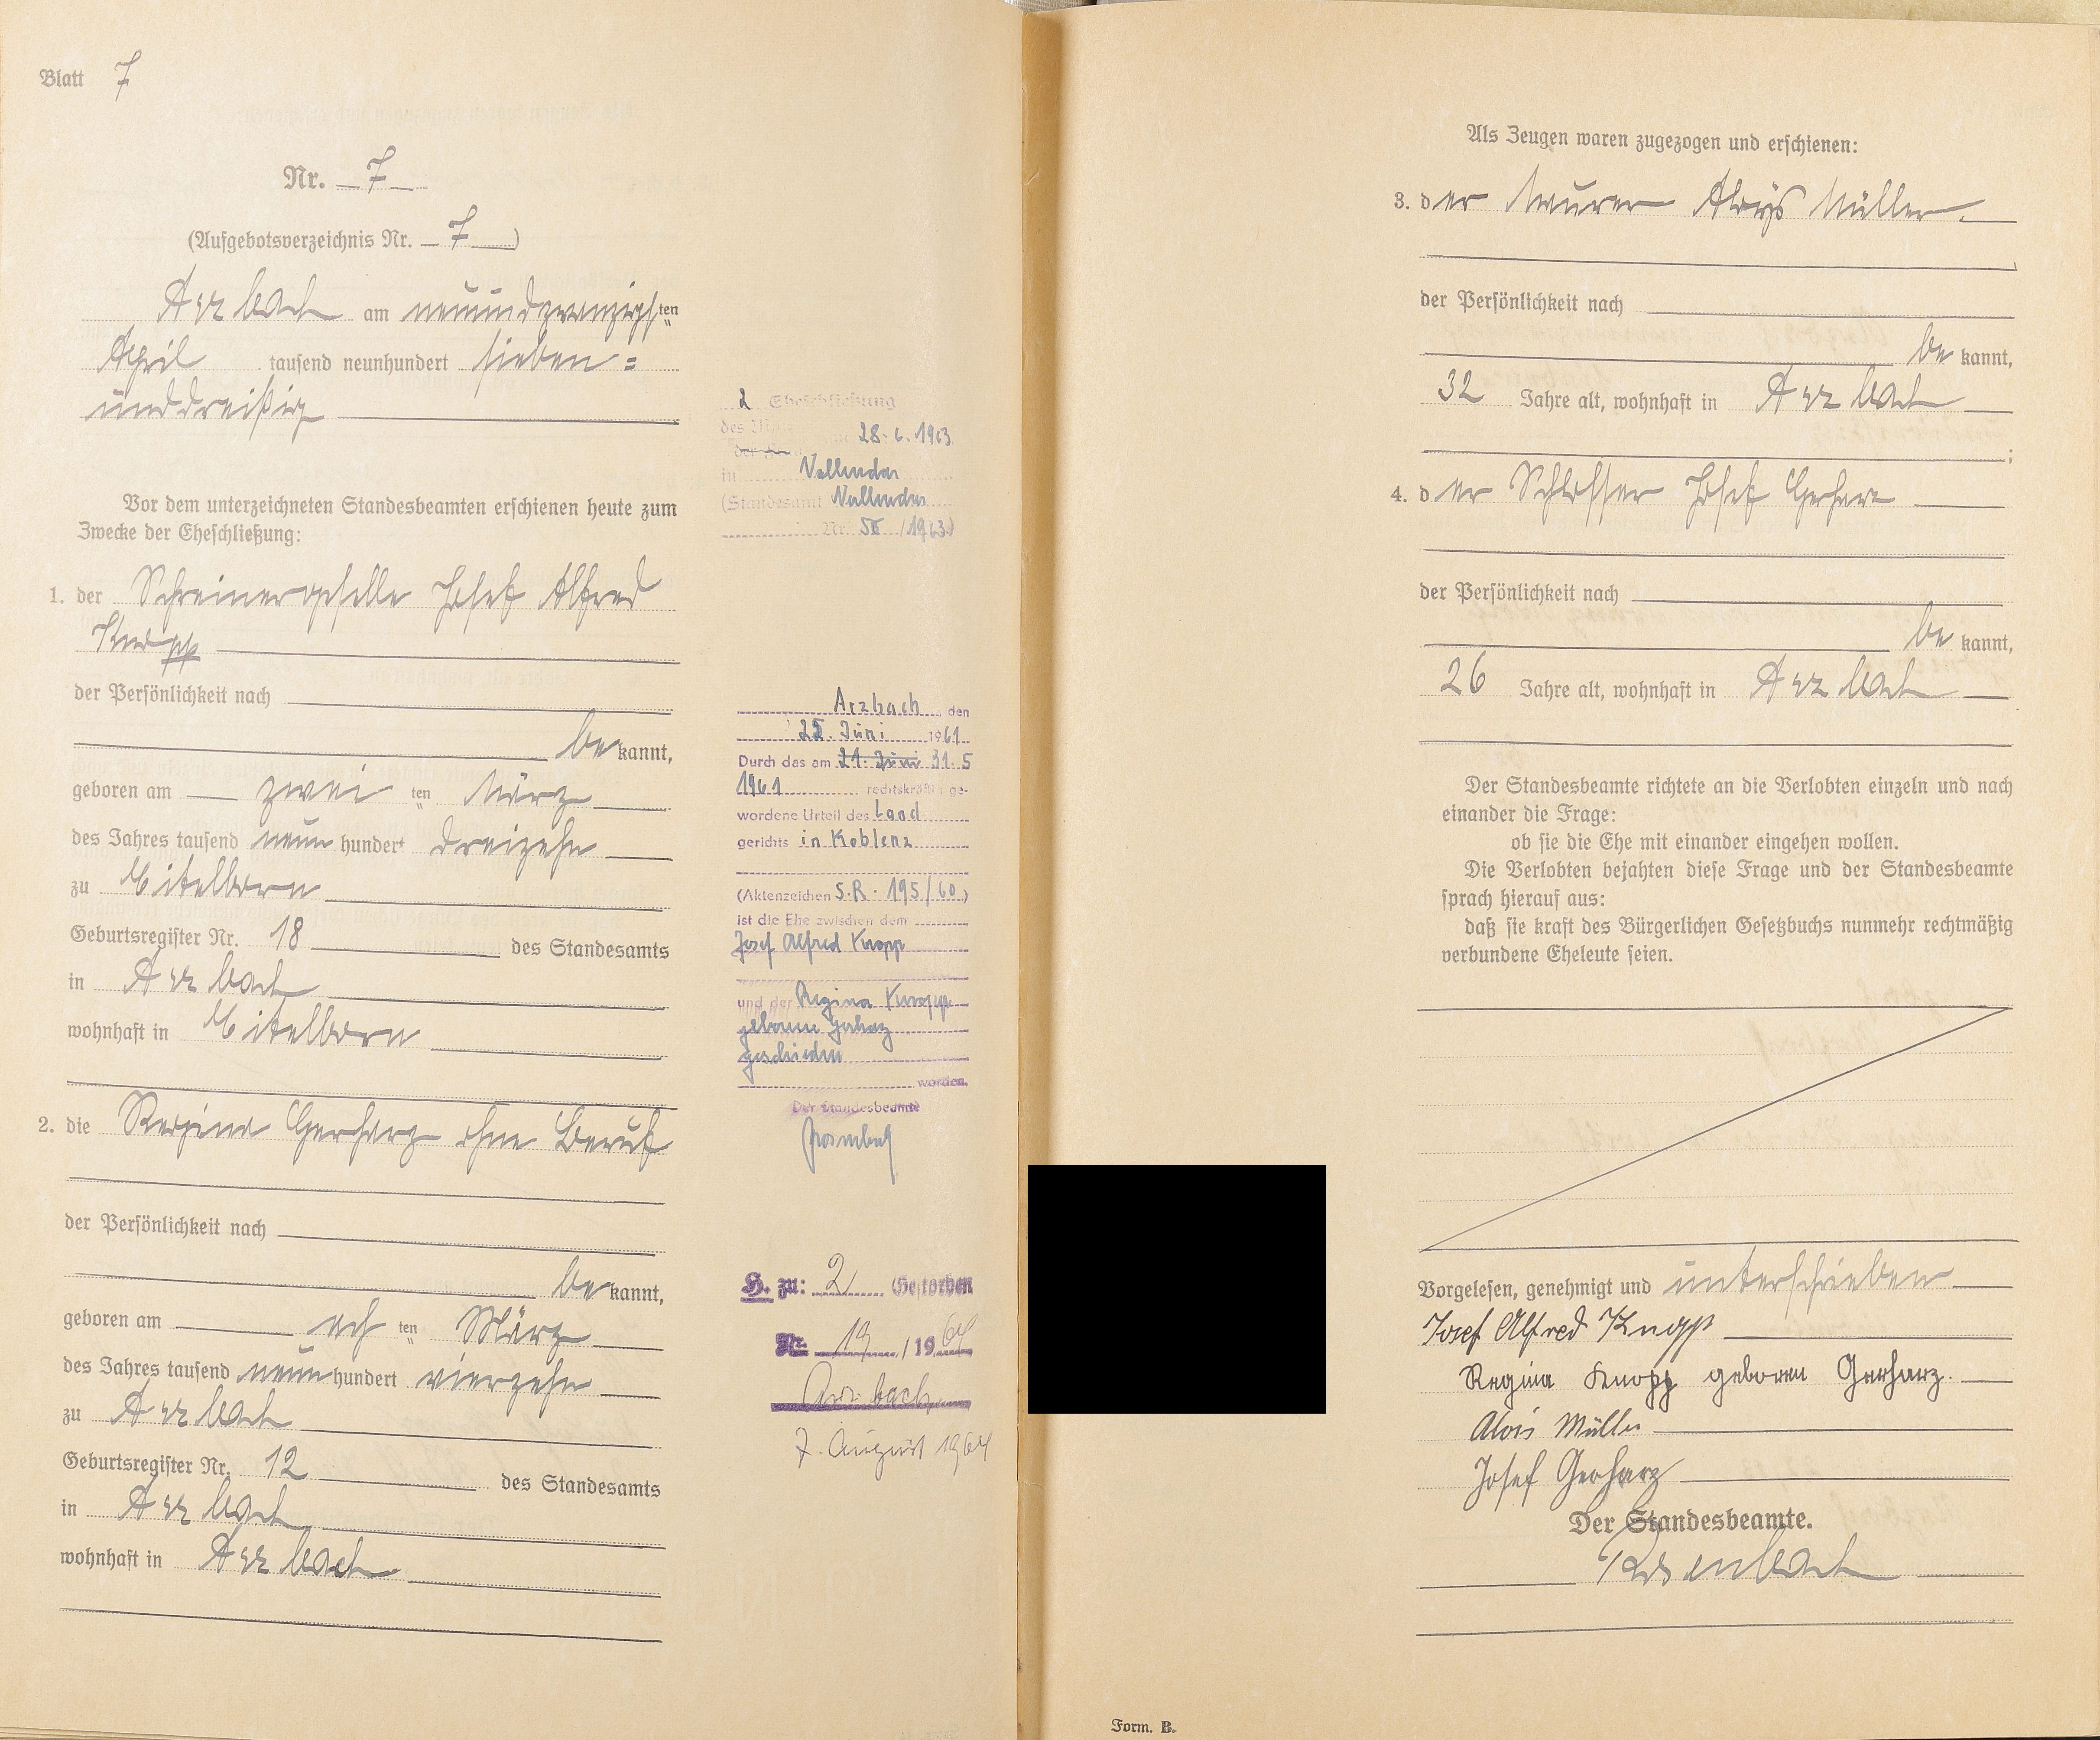 Blatt 7
Nr. 7
(Aufgebotsverzeichnis Nr. 7)
Arzbach am neunundzwanzigsten
April tausend neunhundert sieben=
unddreißig
Vor dem unterzeichneten Standesbeamten erschienen heute zum
Zwecke der Eheschließung:
1. der Schreinergeselle Josef Alfred
Knopp
der Persönlichkeit nach
bekannt,
geboren am zwei ten März
des Jahres tausend neun hundert dreizehn
zu Eitelborn
Geburtsregister Nr. 18 des Standesamts
in Arzbach
wohnhaft in Eitelborn
2. die Regina Gerharz ohne Beruf
der Persönlichkeit nach
bekannt,
geboren am ach ten März
des Jahres tausend neun hundert vierzehn
zu Arzbach
Geburtsregister Nr. 12 des Standesamts
in Arzbach
wohnhaft in Arzbach
2 Eheschließung
des
28. 6. 1963
in Vallendar
(Standesamt Vallendar
Nr. /1963)
Arzbach, den
Juni 1961
Durch das am 21. Juni 31.5
1961 rechtskräftig ge-
wordene Urteil des Land
gerichts in Koblenz
(Aktenzeichen S.R. 195/60)
ist die Ehe zwischen dem
Josef Alfred Knopp
und der Regina Knopp
geborene Gerharz
geschieden
worden.
Der Standesbeamte
H. zu: 2 Gestorben
Nr. 19/1964
Arzbach
7. August 1964
Als Zeugen waren zugezogen und erschienen:
3. der Maurer Aloys Müller
der Persönlichkeit nach
bekannt,
32 Jahre alt, wohnhaft in Arzbach
;
4. der Schlosser Josef Gerharz
der Persönlichkeit nach
bekannt,
26 Jahre alt, wohnhaft in Arzbach
Der Standesbeamte richtete an die Verlobten einzeln und nach
einander die Frage:
ob sie die Ehe mit einander eingehen wollen.
Die Verlobten bejahten diese Frage und der Standesbeamte
sprach hierauf aus:
daß sie kraft des Bürgerlichen Gesetzbuchs nunmehr rechtmäßig
verbundene Eheleute seien.
Vorgelesen, genehmigt und unterschrieben
Josef Alfred Knopp
Regina Knopp geboren Gerharz.
Alois Müller
Josef Gerharz
Der Standesbeamte.
Rosenbach
Form. B.